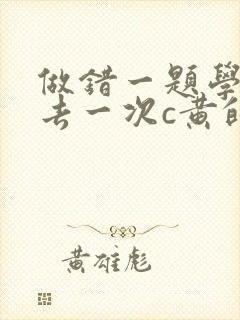 做錯一題學
去一次c黄自
黄雄彪